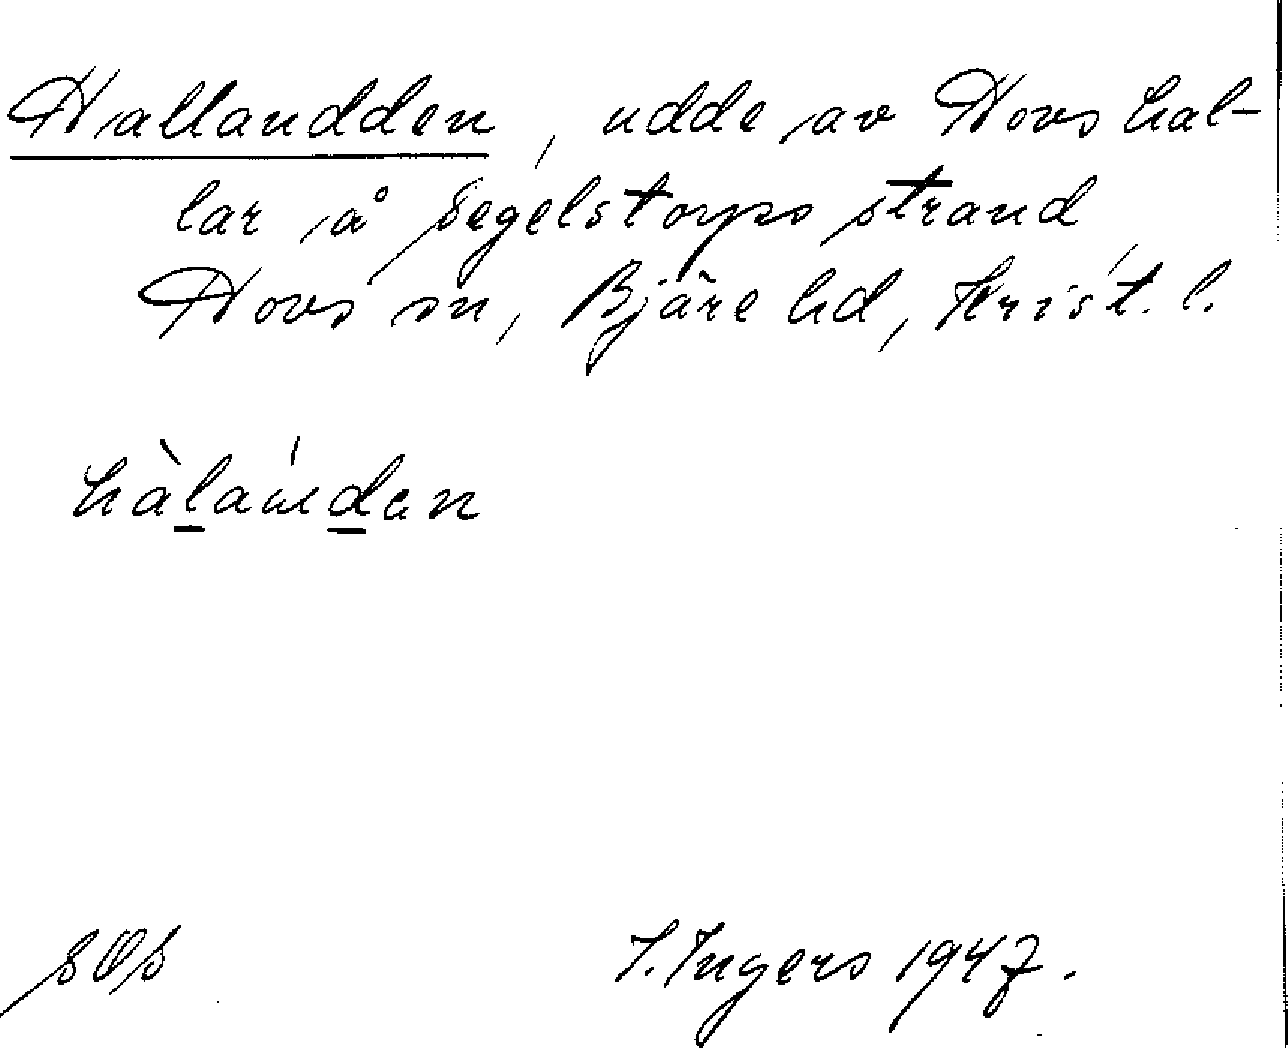 Hallaudden, udde av Hovs hal-
lar å Segelstorps strand
Hovs sn, Bjäre hd, Krist. l.
SOS
I. Ingers 1947.